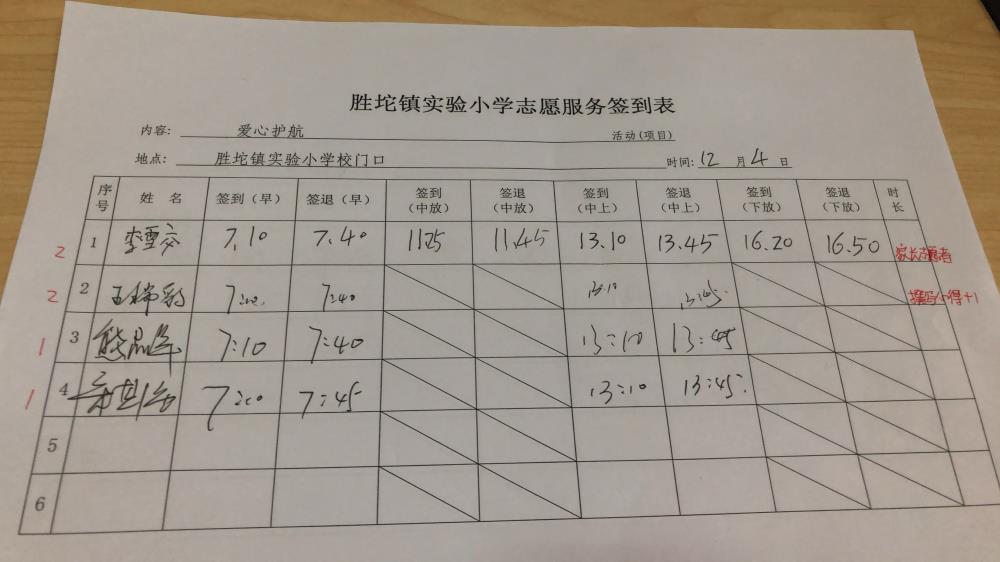 胜坨镇实验小学志愿服务签到表
内容: 爱心护航 活动(项目)
地点: 胜坨镇实验小学校门口 时间: 12 月 4 日
序号 姓 名 签到（早） 签退（早） 签到（中放） 签退（中放） 签到（中上） 签退（中上） 签到（下放） 签退（下放） 时长
2 1 7.10 7.40 1125 11.45 13.10 13.45 16.20 16.50 家长志愿者
2 2 7:40 13:10 13:45 撰写心得+1
1 3 7:10 7:40 13:10 13:45
1 4 7:45 13:10 13:45
5
6